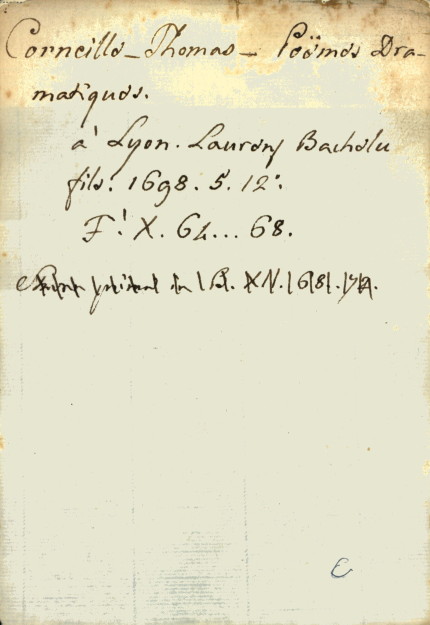 Corneille-Thomas- Poëmes Dra-
matiques.
à Lyon. Laurent Bachelu
fils. 1698. 5. 12º
F. X. 64...68.
B.
C